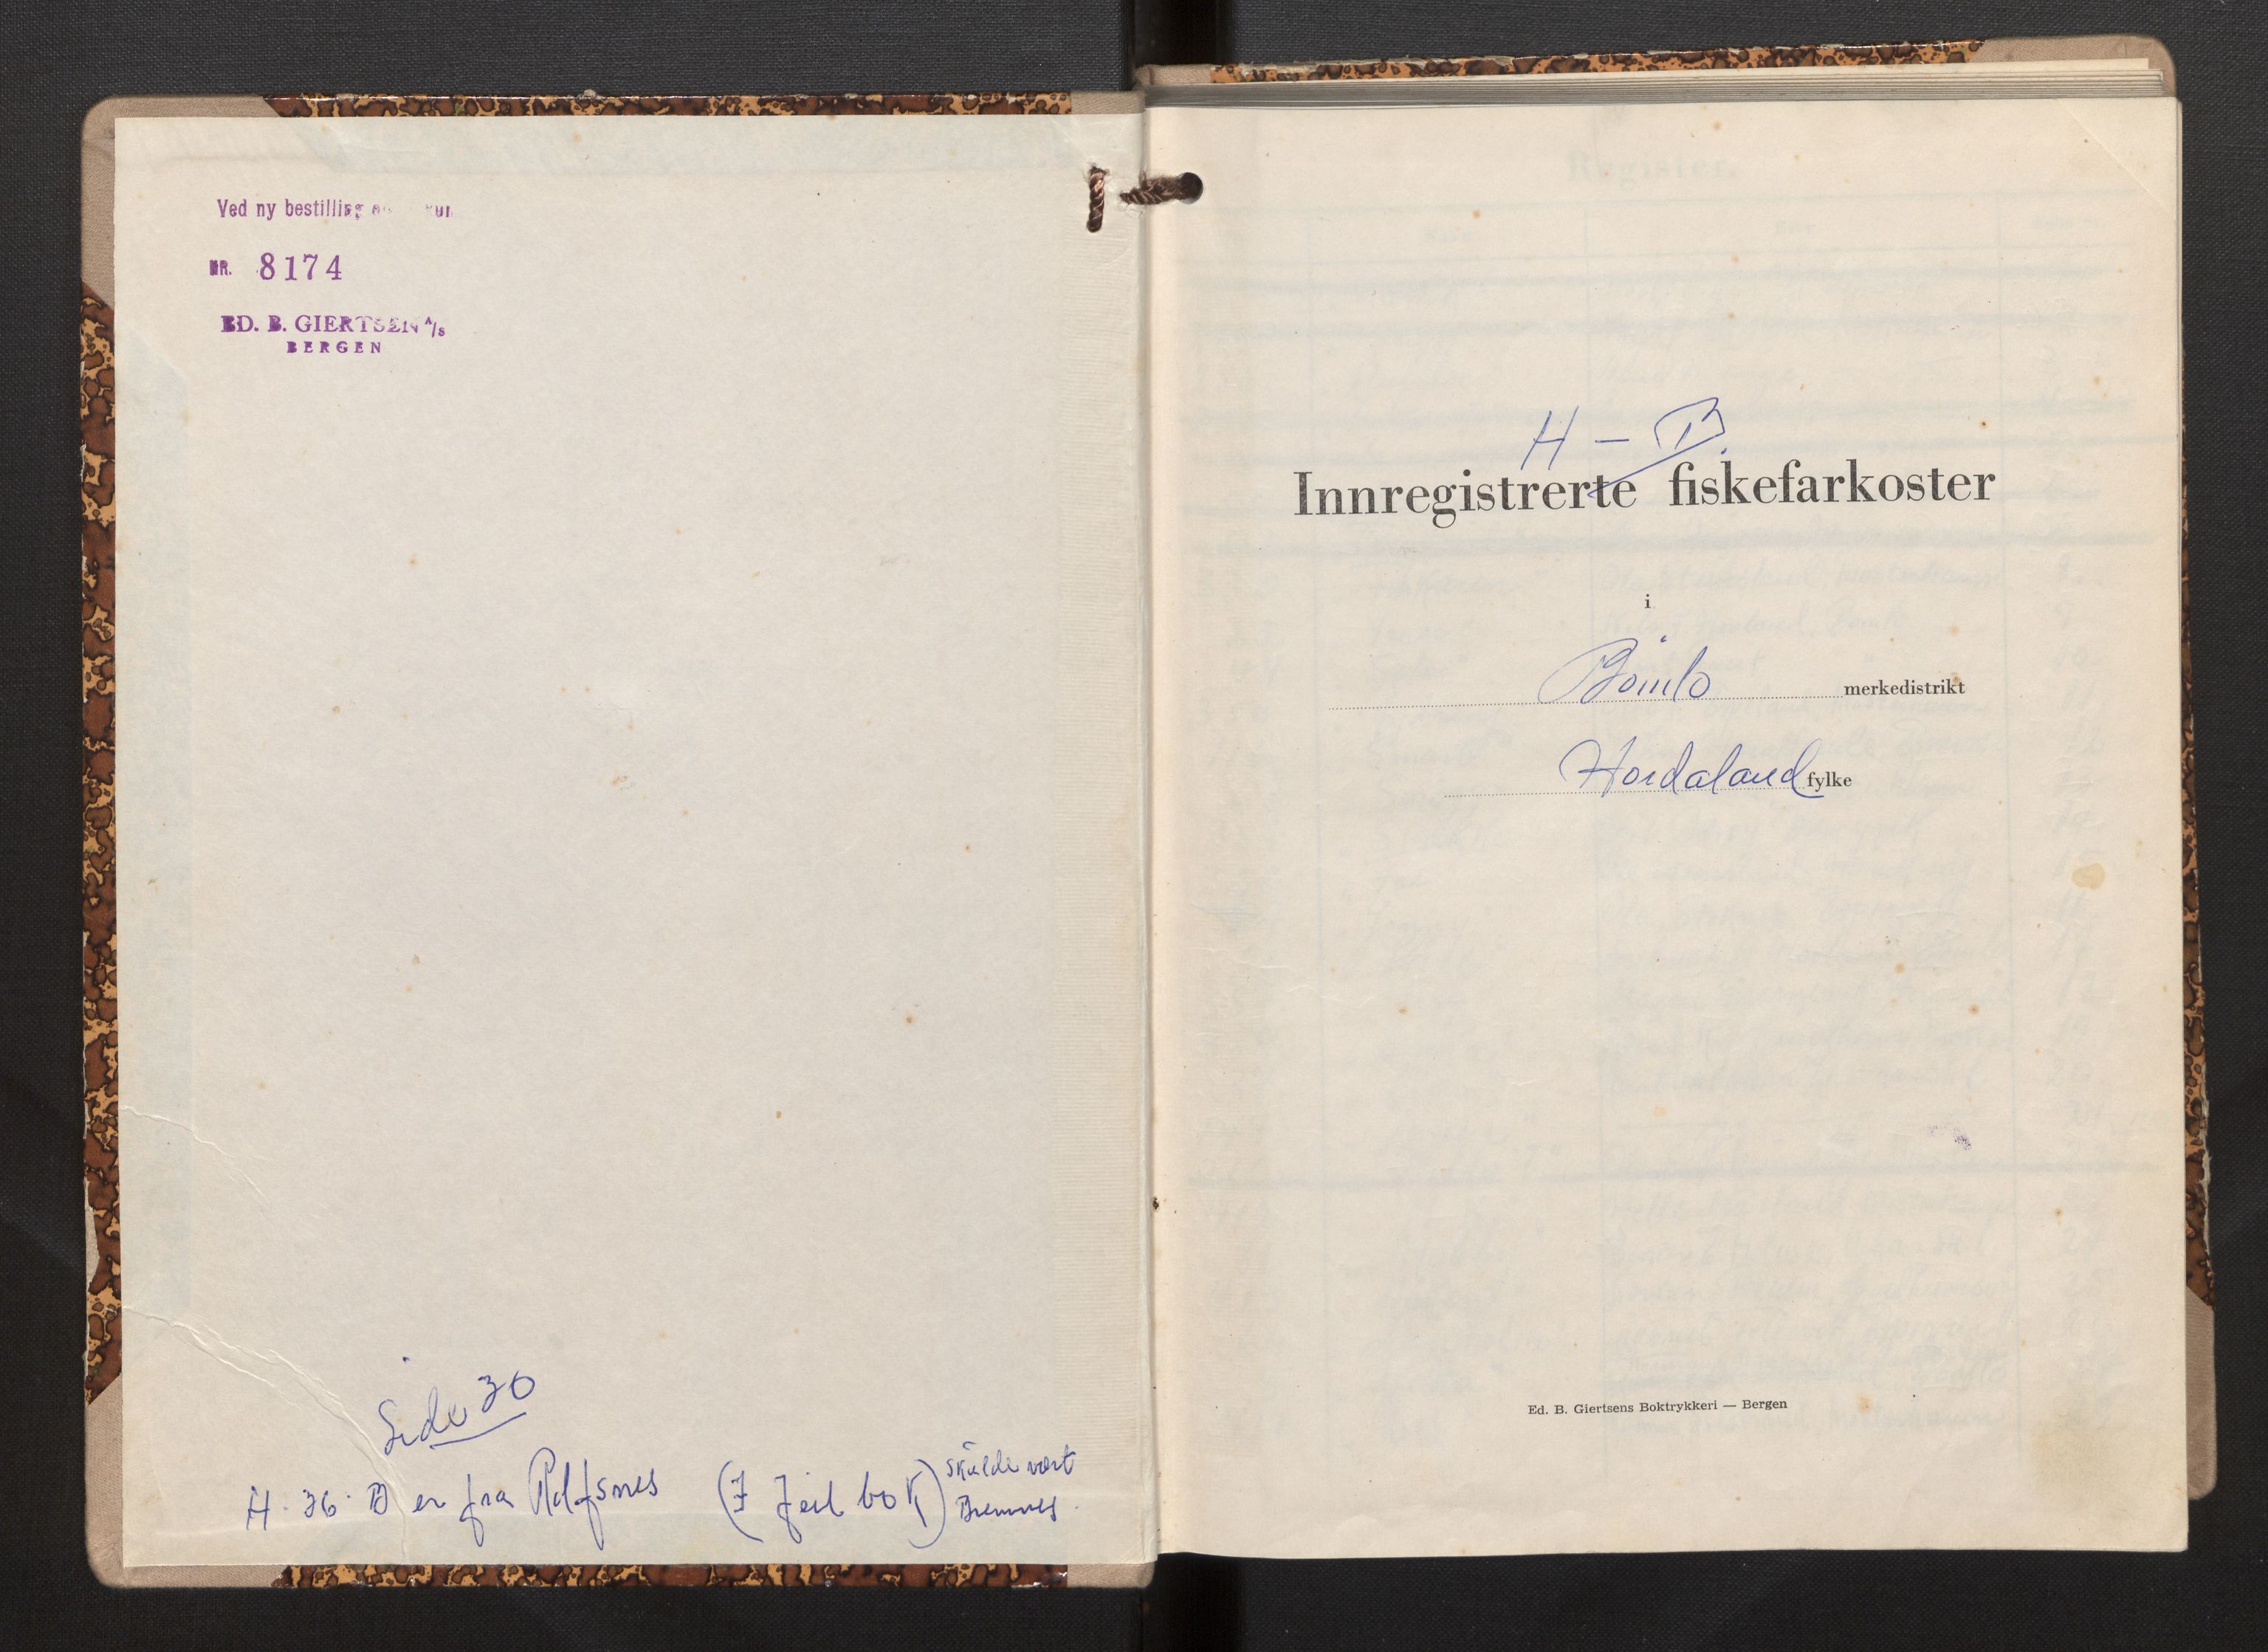 Ved ny bestilling
NR. 8174
ED. B. GIERTSEN A/S
BERGEN
Side 30
H. 36. B er fra Rolfsnes (I feil bok) skulde vært
Bremnes.
H - B.
Innregistrerte fiskefarkoster
i
Bömlo merkedistrikt
Hordaland fylke
Ed. B. Giertsens Boktrykkeri — Bergen